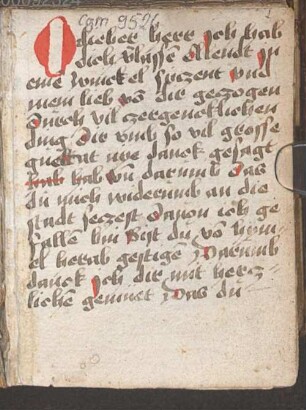 Cgm 9526
1
O lieber herr Ich hab
dich Müssen Ellendt in
eine winckel spazent und
mein lieb vo dir gezogen
Durch vil zergencklichen
ding Dir umb so vil grosse
guettat nye danck gesagt
hab wu darumb das
du mich widerumb an die
stadt sezest Davon ich ge
fallen bin Bist du vo hym
el herab gestige Darumb
danck ich dir mit hercz
lichen gemuet Das du